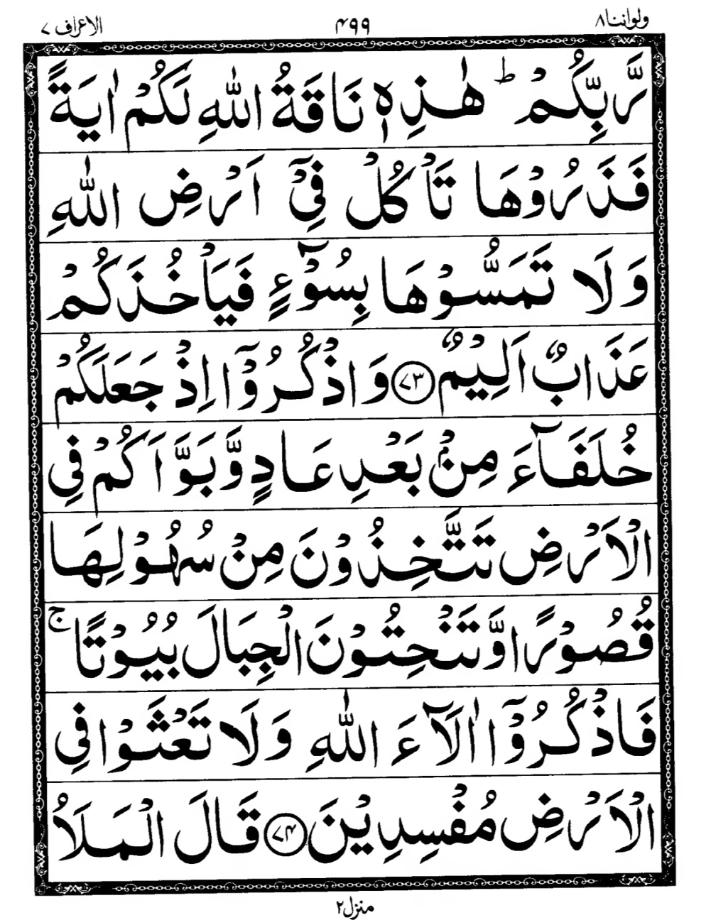 ولواننا۸ ۴۹۹ الاعراف ۷
رَّبِّكُمْ ؕ هٰذِهٖ نَاقَةُ اللّٰهِ لَكُمْ اٰيَةً
فَذَرُوْهَا تَاْكُلْ فِىْۤ اَرْضِ اللّٰهِ
وَلَا تَمَسُّوْهَا بِسُوْٓءٍ فَيَاْخُذَكُمْ
عَذَابٌ اَلِيْمٌ ﴿۷۳﴾ وَاذْكُرُوْۤا اِذْ جَعَلَكُمْ
خُلَفَآءَ مِنْۢ بَعْدِ عَادٍ وَّبَوَّاَكُمْ فِى
الْاَرْضِ تَتَّخِذُوْنَ مِنْ سُهُوْلِهَا
قُصُوْرًا وَّتَنْحِتُوْنَ الْجِبَالَ بُيُوْتًا ۚ
فَاذْكُرُوْۤا اٰلَآءَ اللّٰهِ وَلَا تَعْثَوْا فِى
الْاَرْضِ مُفْسِدِيْنَ ﴿۷۴﴾ قَالَ الْمَلَاُ
منزل۲